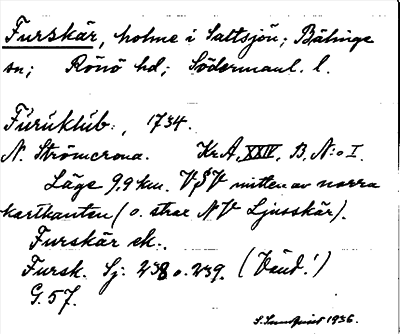 Furskär, holme i Saltsjön; Bälinge
sn; Rönö hd; Södermanl. l.
Furuklub:, 1734.
N. Strömcrona. Kr.A, XXIV, B, N:o I.
Läge 9,9 km. VSV mitten av norra
kartkanten (o. strax NV Ljusskär).
Furskär ek.
Fursk. Sj: 238 o. 239. (Vänd!)
G. 57.
S. Sundqvist 1936.